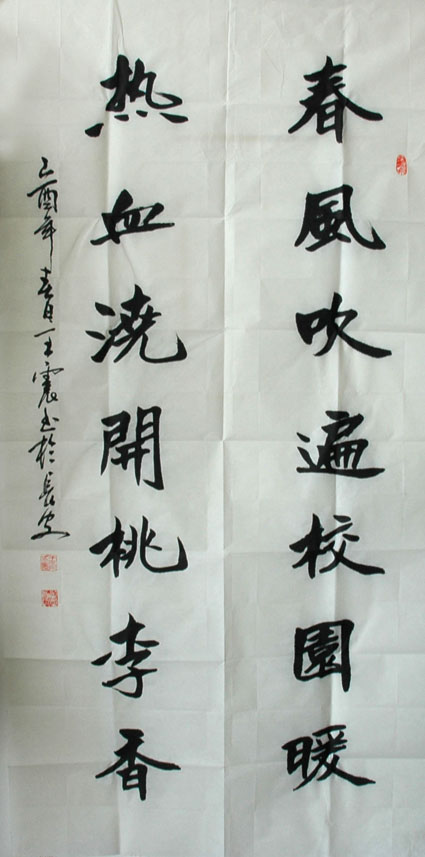 春風吹遍校園暖
热血澆開桃李香
乙酉年春日王震书於長安